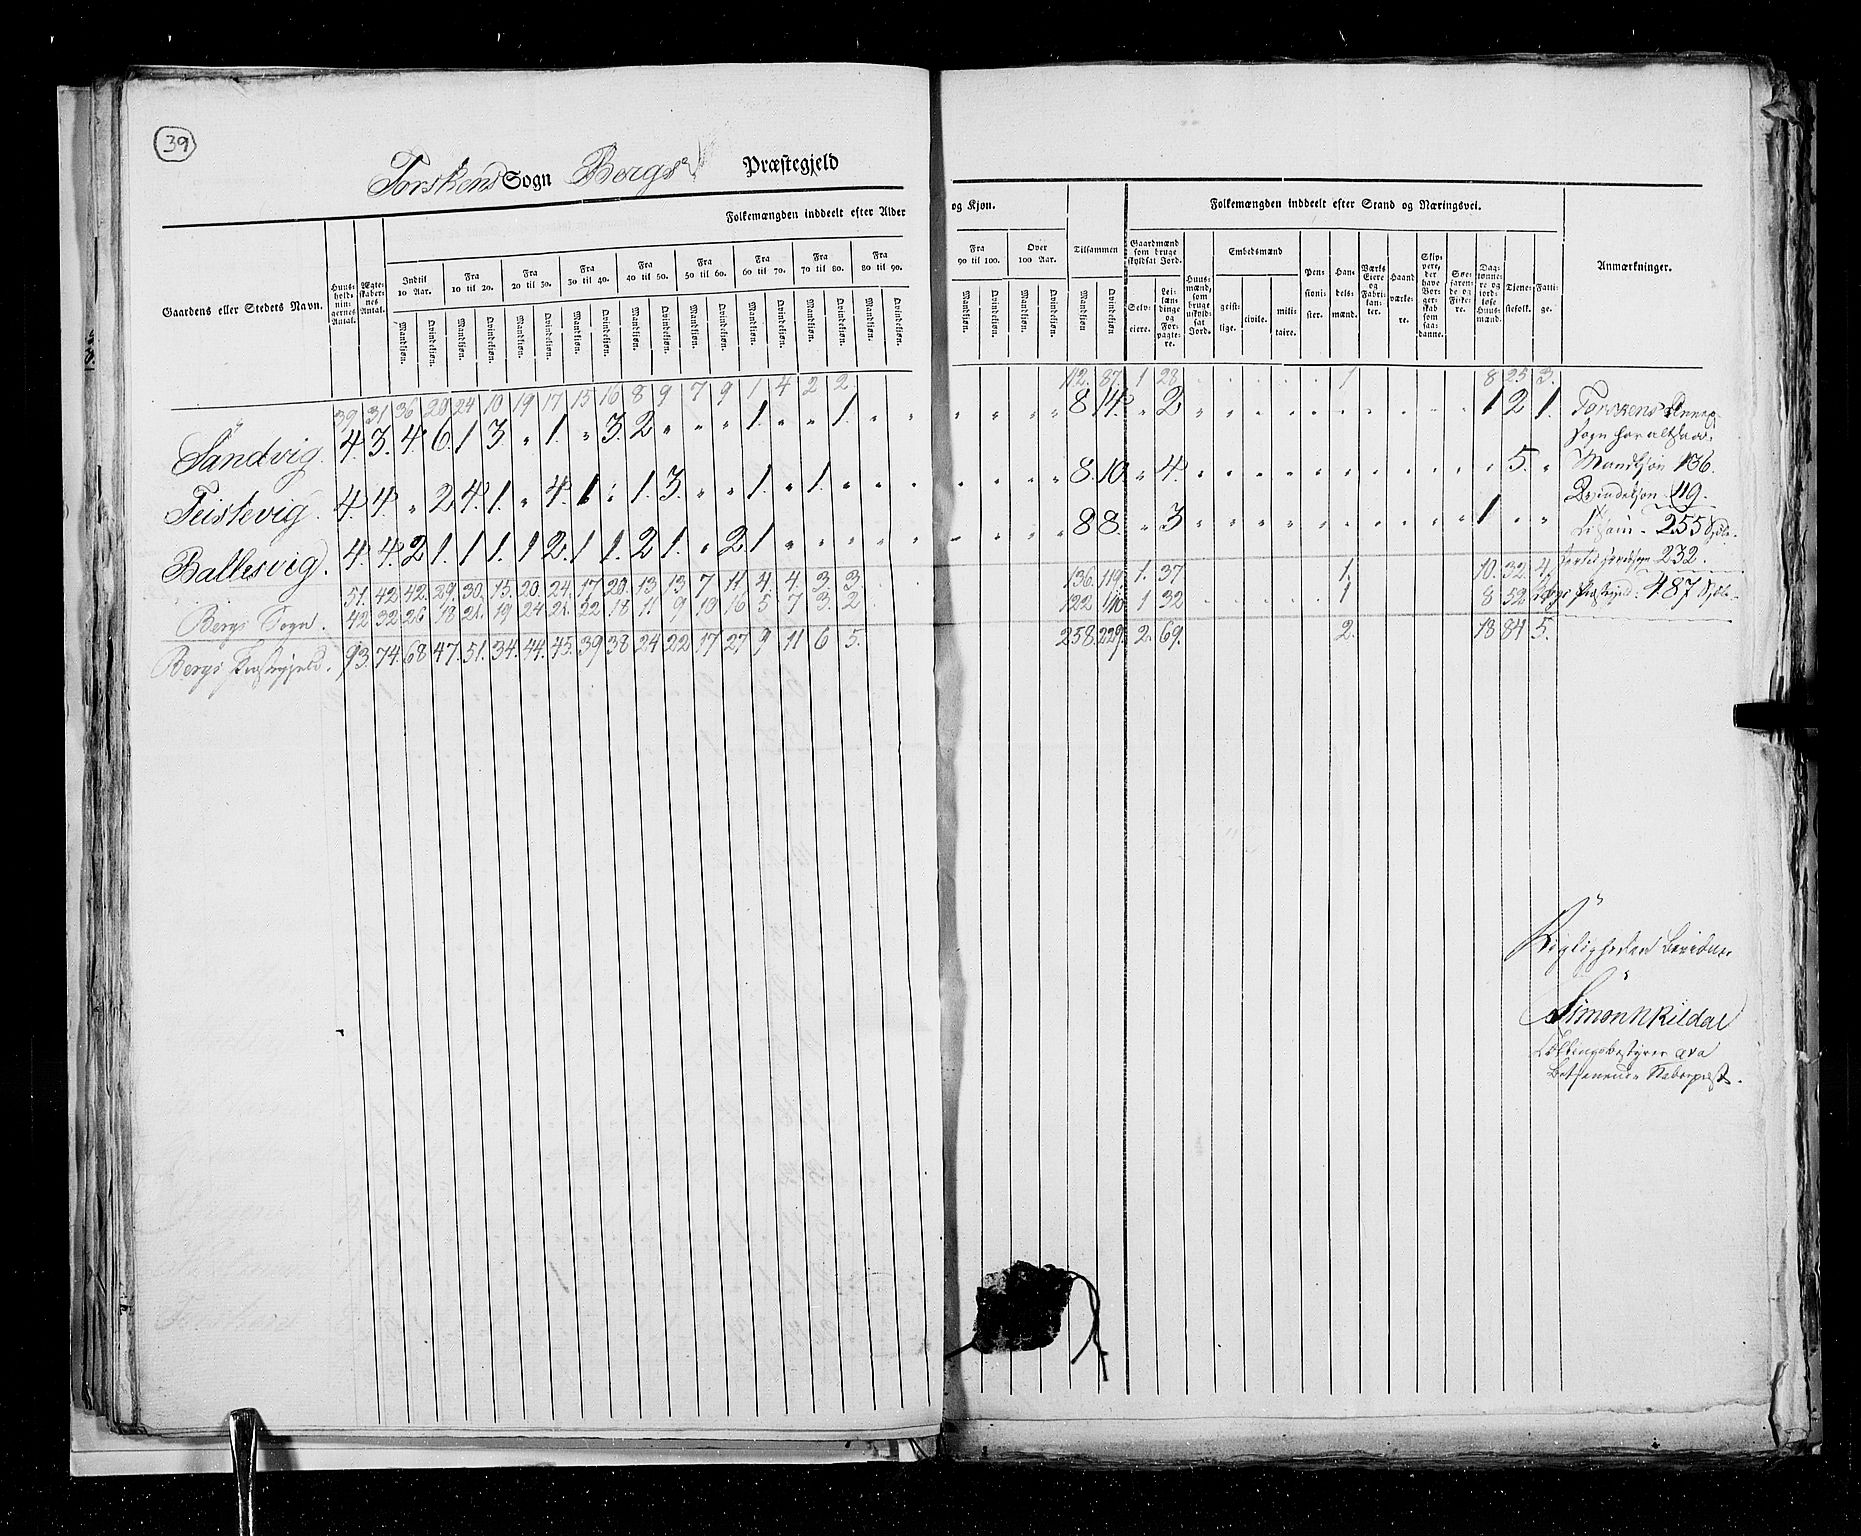 39
Torskens Sogn Bergs Præstegjeld
Folkemængden inddeelt efter Alder og Kjøn. Folkemængden inddeelt efter Stand og Næringsvei.
Gaardens eller Stedets Navn. Huusholdningernes Antal. Ægteskabernes Antal. Indtil 10 Aar. Fra 10 til 20. Fra 20 til 30. Fra 30 til 40. Fra 40 til 50. Fra 50 til 60. Fra 60 til 70. Fra 70 til 80. Fra 80 til 90. Fra 90 til 100. Over 100 Aar. Tilsammen Gaardmænd som bruge skyldsat Jord. Huusmænd, som bruge uskyldsat Jord. Embedsmænd Pensionister. Handelsmænd. Værks Eiere og Fabrikanter. Haandværkere. Skippere, der have Borgerskab som saadanne. Søefarende og Fiskere. Daglønnere og jordløse Huusmænd. Tjenestefolk. Fattige. Anmærkninger.
Mandkjøn. Qvindekjøn. Selveiere. Leilændinge og Forpagtere. geistlige. civile. militaire.
39 31 36 20 24 10 19 17 15 16 8 9 7 9 1 4 2 2 112. 87. 1 28. 1 8 25 3.
Sandvig. 4. 3. 4. 6. 1 3 " 1. " 3. 2 " " " 1. " " 1. " " 8 14. " 2 1 2 1. Torskens Annex
Sogn har altsaa
Feistevig. 4. 4. " 2 4. 1. " 4. 1. " 1. 3. " " 1. " 1. " " " 8. 10. " 4. 5. " Mandkjøn 136.
Qvindekjøn 119.
Ballesvig. 4. 4. 2 1. 1. 1. 1. 2. 1 1. 2 1. " 2 1 " " " " " 8 8. " 3 1 " " Tilsam. 255 Sjæle.
51. 42. 42. 29. 30. 15. 20. 24. 17 20. 13 13. 7 11. 4. 4. 3 3. 136. 119. 1. 37 1. 10. 32. 4. 232.
Bergs Sogn. 42 32 26 18 21. 19 24 21. 22 18 11 9 10 16 5 7 3. 2 122 110 1 32 1 8 52 487 Sjæle.
Bergs Præstegjeld. 93. 74. 68 47. 51. 34. 44. 45. 39 38 24 22 17 27 9 11 6 5. 258. 229. 2. 69. 2. 18 84 5.
Rigtigheden bevidner
Simon Kildal